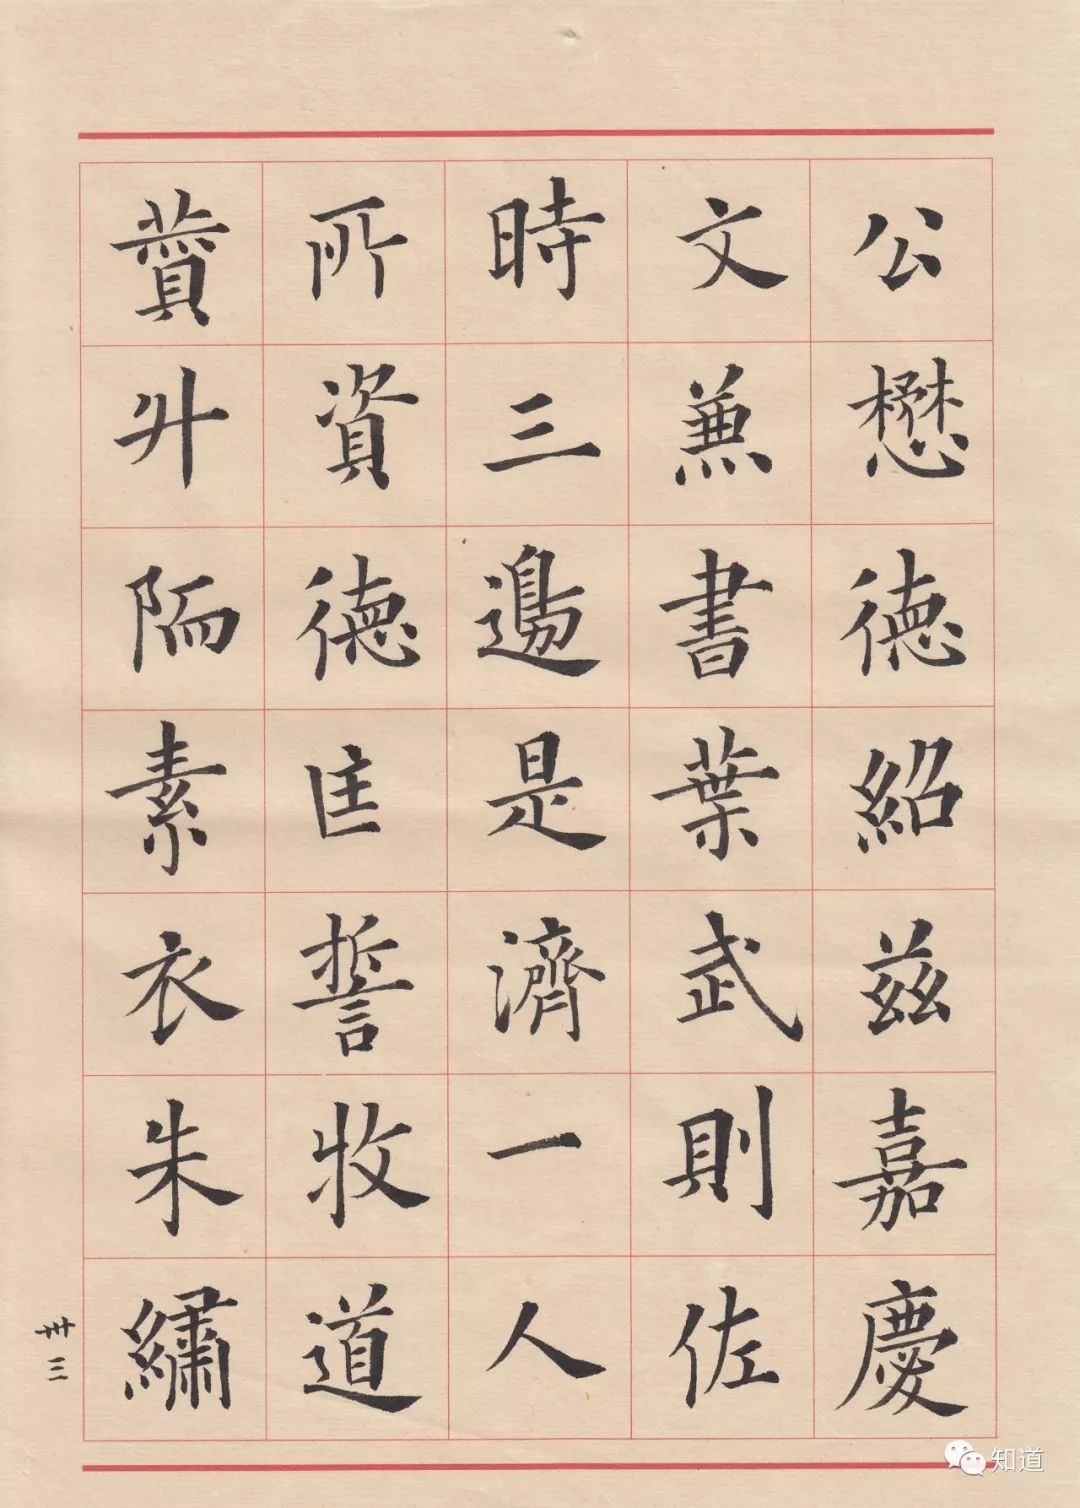 公懋德紹茲嘉慶
文兼書葉武則佐
時三邊是濟一人
所資德匡誓牧道
贊升陑素衣朱繡
卅三
知道